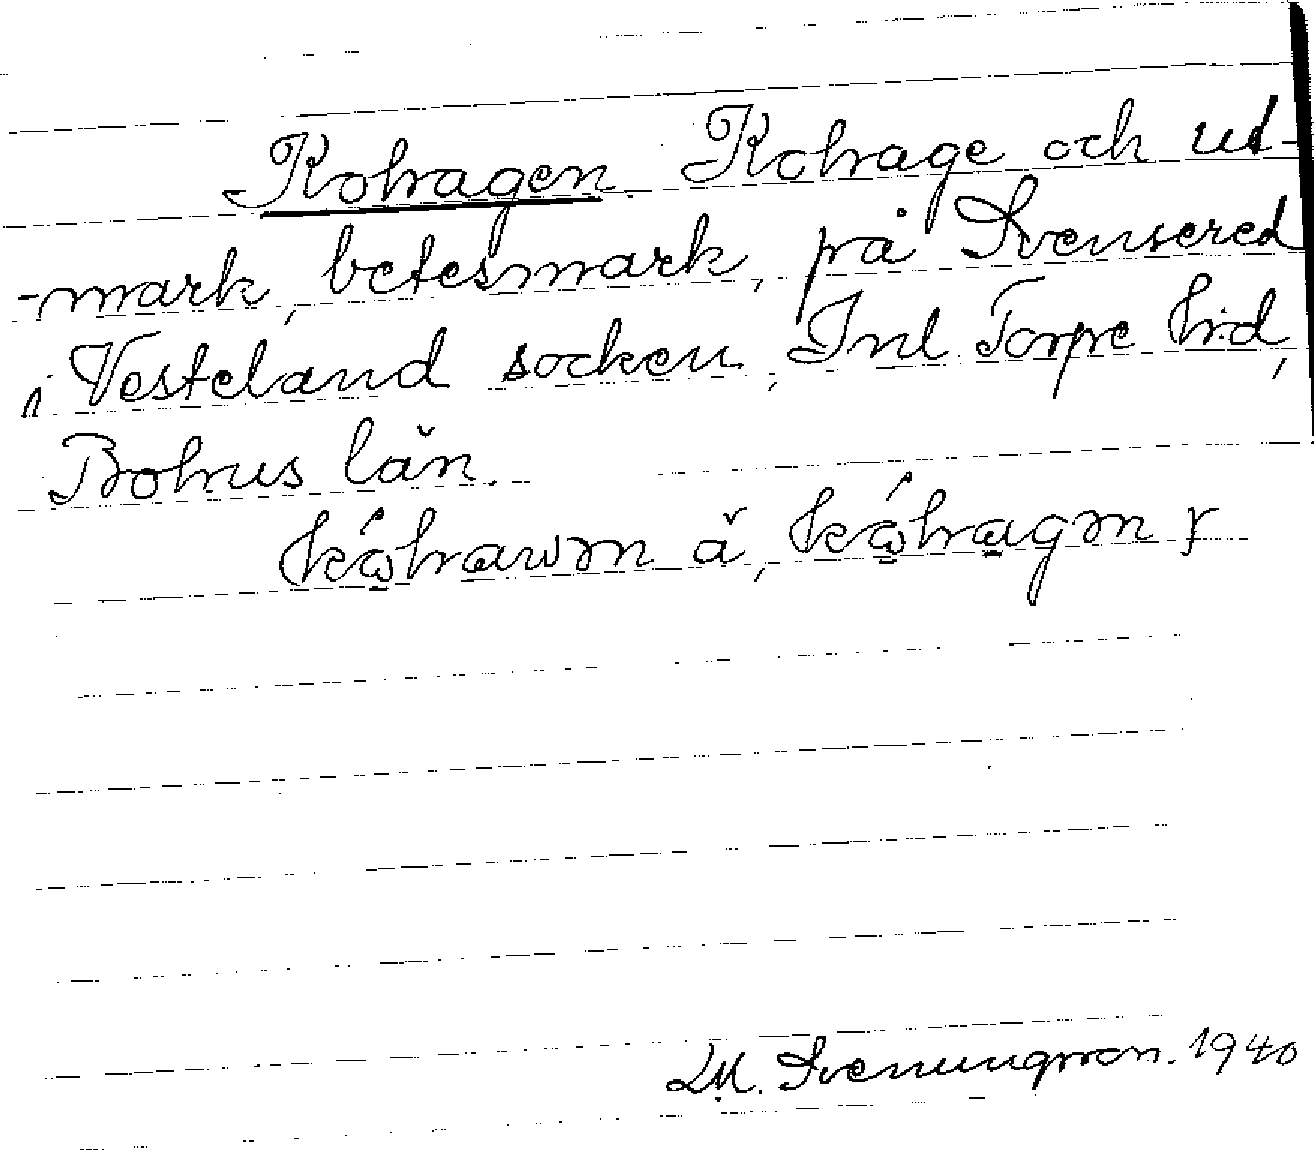 Kohagen Kohage och ut-
-mark, betesmark, på Svensered
i Vesteland socken, Inl Torpe hrd,
Bohus län.
kóhawən ä, kóhagən r
LM. Svenungsson. 1940